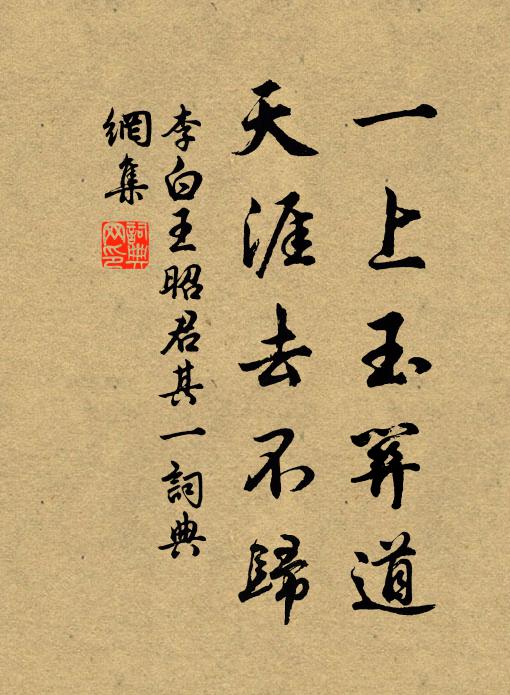 一上玉關道
天涯去不歸
李白王昭君其一詞典
網集
詞典
网印